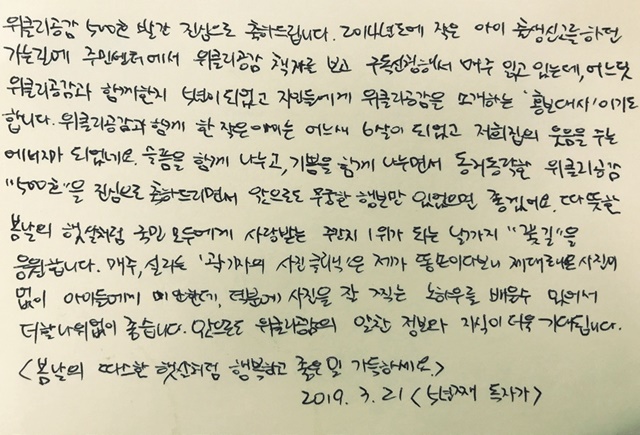 위클리공감 500호 발간 진심으로 축하드립니다. 2014년도에 작은 아이 출생신고를 하던
가는길에 주민센터에서 위클리공감 책자를 보고 구독신청해서 매주 읽고 있는데, 어느덧
위클리공감과 함께한지 5년이 되었고 지인들에게 위클리공감을 소개하는 '홍보대사'이기도
합니다. 위클리공감과 함께 한 작은아이는 어느새 6살이 되었고 저희집의 웃음을 주는
에너자 되었네요. 슬픔을 함께 나누고, 기쁨을 함께 나누면서 동거동락한 위클리공감
"500호"을 진심으로 축하드리면서 앞으로도 무궁한 행보만 있었으면 좋겠어요. 따뜻한
봄날의 햇살처럼 국민 모두에게 사랑받는 주간지 1위가 되는 날까지 "꽃길"을
응원합니다. 매주, 실리는 '곽기자의 사진클리닉'은 제가 똥손이다보니 제대로된 사진이
없어 아이들에게 미안한데, 덕분에 사진을 잘 찍는 노하우를 배울수 있어서
더할나위없이 좋습니다. 앞으로도 위클리공감의 알찬 정보와 지식이 더욱 기대됩니다.
<봄날의 따스한 햇살처럼 행복하고 좋은일 가득하세요.>
2019. 3. 21 <5년째 독자가>